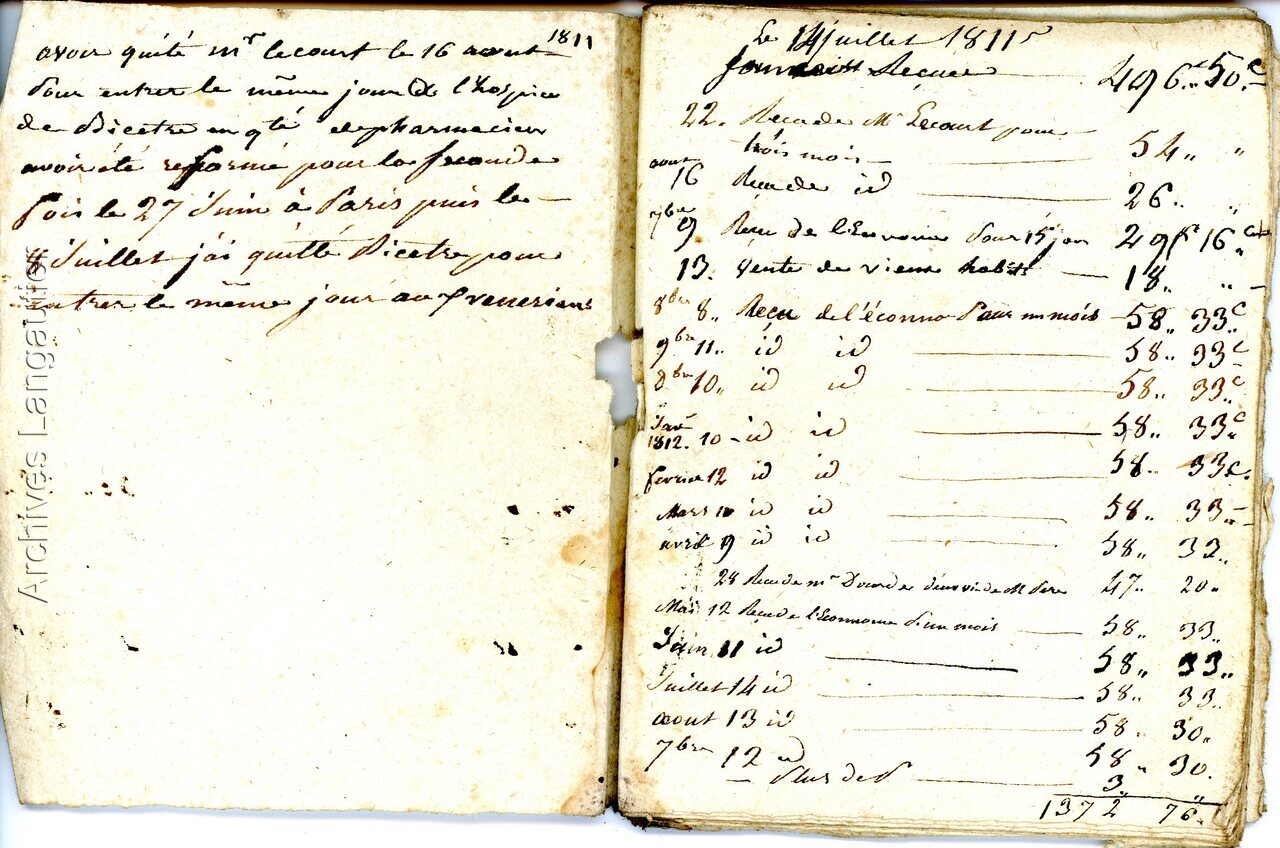 1811
avoir quité mr lecourt le 16 aout
Pour entrer le même jour à l'hospice
de Bicetre en qté de pharmacien
avoir été reformé pour la seconde
fois le 27 Juin à Paris puis le
8 Juillet j'ai quitté Bicetre pour
entrer le même jour aux veneriens
Le 14 juillet 1811
Reçue 496.. 50c
22. Reçu de Mr Lecourt pour
trois mois 54.. "
aout
16 Reçu de id 26.. "
7bre
9 Reçu de l'Econome Pour 15 jour 29 16
13. vente de vieux habits 18.. "
8bre 8.. Reçu de l'économe Pour un mois 58.. 33c
9bre 11.. id id 58.. 33c
8bre 10.. id id 58.. 33c
Janv
1812. 10 - id id 58.. 33c
fevrier 12 id id 58.. 33c.
Mars 10 id id 58.. 33..
avril 9 id id 58.. 33..
28 Reçu de mr de M Pere 47.. 20..
Mai 12 Reçu de l'Econome d'un mois 58.. 33..
Juin 11 id 58.. 33..
Juillet 14 id 58.. 33..
aout 13 id 58.. 30..
7bre 12 id 58 " 30.
Plus de 3.. "
1372 76
Archives Langautier